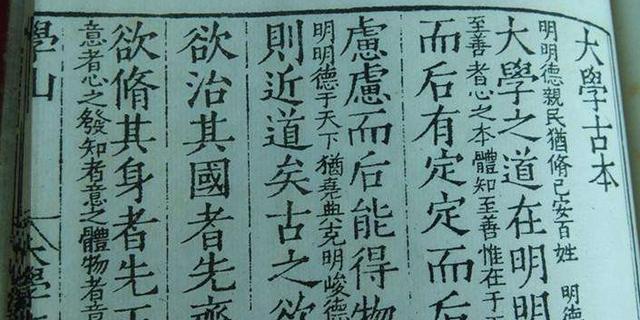 大學古本
明明德親民猶脩己安百姓 明德
大學之道在明明
至善者心之本體知至善惟在于
而后有定定而后
慮慮而后能得物
明明德于天下猶堯典克明峻德
則近道矣古之欲
欲治其國者先齊
欲脩其身者先
意者心之發知者意之體物者意
學山 大學